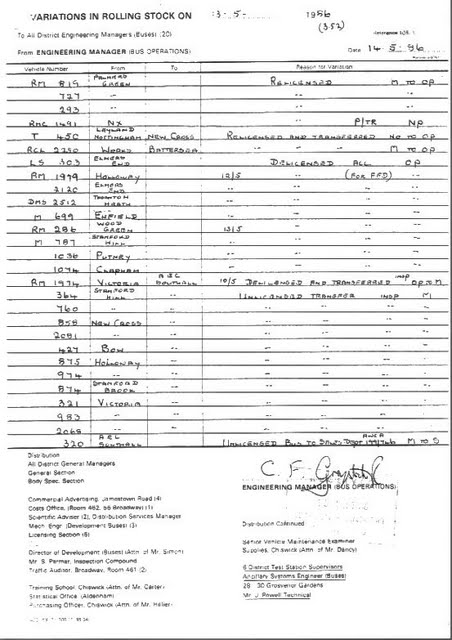 VARIATIONS IN ROLLING STOCK ON 13-5- 1986
(352)
To All District Engineering Managers (Buses) (20)
From ENGINEERING MANAGER (BUS OPERATIONS) Date 14-5-86
Vehicle Number From To Reason for Variation
RM 819 PALMERS GREEN RELICENSED M TO OP
727 -- -- --
293 -- -- --
RMC 1491 NX -- P/TR NP
T 450 LEYLAND NOTTINGHAM NEW CROSS RELICENSED AND TRANSFERRED NO TO OP
RCL 2250 WORKS BATTERSEA -- -- -- M TO OP
LS 303 ELMERS END DELICENSED ALL OP
RM 1979 HOLLOWAY 12/5 -- (FOR FFD) --
2120 ELMERS END -- -- --
DMS 2512 THORNTON HEATH -- -- --
M 699 ENFIELD -- -- --
RM 286 WOOD GREEN 13/5 -- --
M 787 STAMFORD HILL -- -- --
1036 PUTNEY -- -- --
1074 CLAPHAM -- -- --
RM 1974 VICTORIA AEC SOUTHALL 10/5 DELICENSED AND TRANSFERRED INSP OP TO M
364 STAMFORD HILL -- UNLICENSED TRANSFER INSP M
760 -- -- -- -- -- --
858 NEW CROSS -- -- -- -- --
2081 -- -- -- -- -- --
427 BOW -- -- -- -- --
875 HOLLOWAY -- -- -- -- --
974 -- -- -- -- -- --
874 STAMFORD BROOK -- -- -- -- --
321 VICTORIA -- -- -- -- --
983 -- -- -- -- -- --
2068 -- -- -- -- -- --
320 AEC SOUTHALL UNLICENSED BUS TO M TO S
Distribution
All District General Managers
General Section
Body Spec. Section
ENGINEERING MANAGER (BUS OPERATIONS)
Commercial Advertising, Jamestown Road (4)
Costs Office, (Room 462, 55 Broadway) (1)
Scientific Adviser (2), Distribution Services Manager
Mech. Engr. (Development Buses) (3)
Licensing Section (6)
Distribution Continued
Senior Vehicle Maintenance Examiner
Supplies, Chiswick (Attn. of Mr. Dancy)
Director of Development (Buses) (Attn. of Mr. Simon)
Mr. S. Parmar, Inspection Compound
Traffic Auditor, Broadway, Room 461 (2)
6 District Test Station Supervisors
Ancillary Systems Engineer (Buses)
28 - 30 Grosvenor Gardens
Mr. J. Powell Technical
Training School, Chiswick (Attn. of Mr. Carter)
Statistical Office (Aldenham)
Purchasing Officer, Chiswick (Attn. of Mr. Hallier)